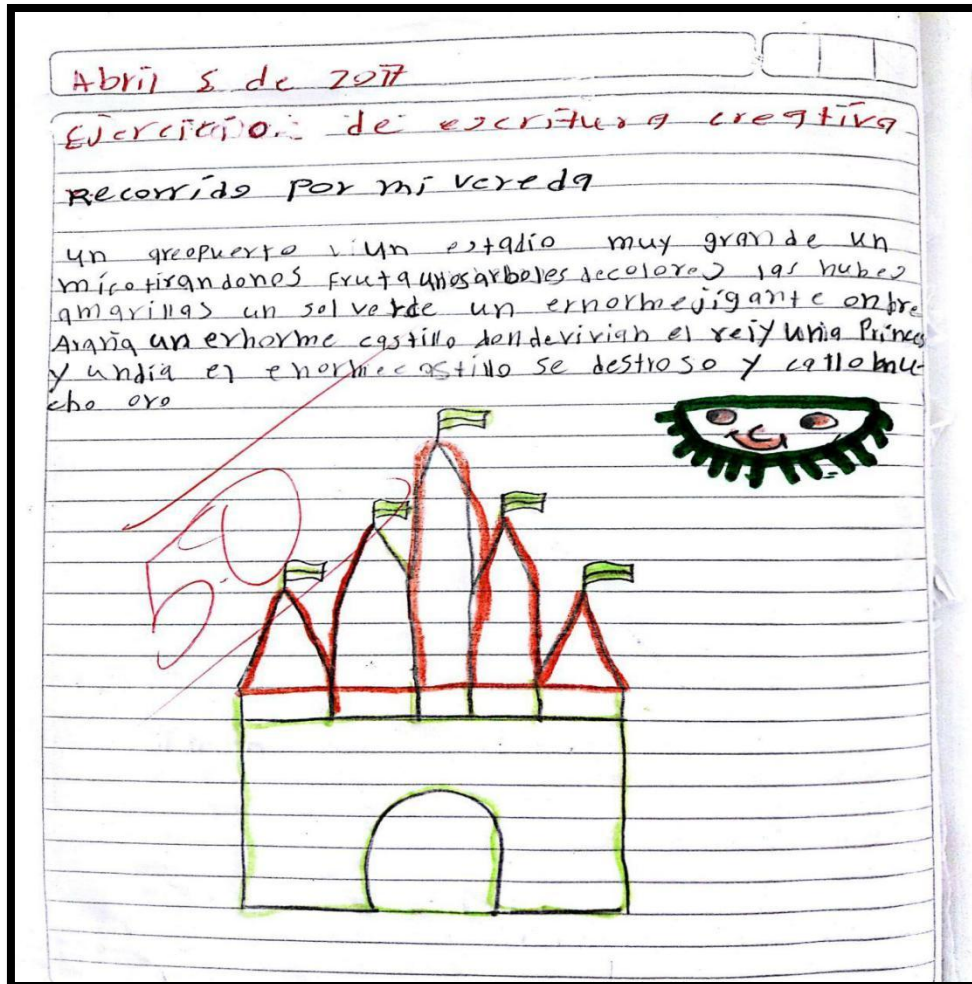 Abril 5 de 2017
Ejercicio de escritura creativa
Recorrido por mi vereda
un areopuerto un estadio muy grande un
mico tirandonos fruta unos arboles de colores las nubes
amarillas un sol verde un ernorme jigante onbre
Araña un enhorme castillo donde vivian el rei y una Princes
y un dia el enhorme castillo se destroso y callo mu-
cho oro
5.0